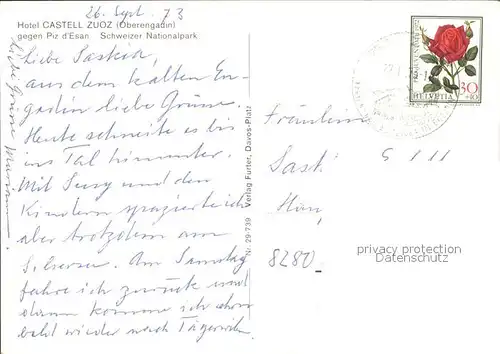 26. Sept. 73
Hotel CASTELL ZUOZ (Oberengadin)
gegen Piz d'Esan Schweizer Nationalpark.
Liebe Saskia,
aus dem kalten En-
gadin liebe Grüsse.
Heute schneite es bis
ins Tal hinunter.
Mit Susy und den
Kindern spazierte ich
aber trotzdem am
Silsersee. Am Samstag
fahre ich zurück und
dann komme ich schon
bald wieder nach Tägerwilen.
Liebe Grüsse
Nr. 29-739 Verlag Furter, Davos-Platz
HELVETIA
30
+10
Fräulein
8280
privacy protection
Datenschutz